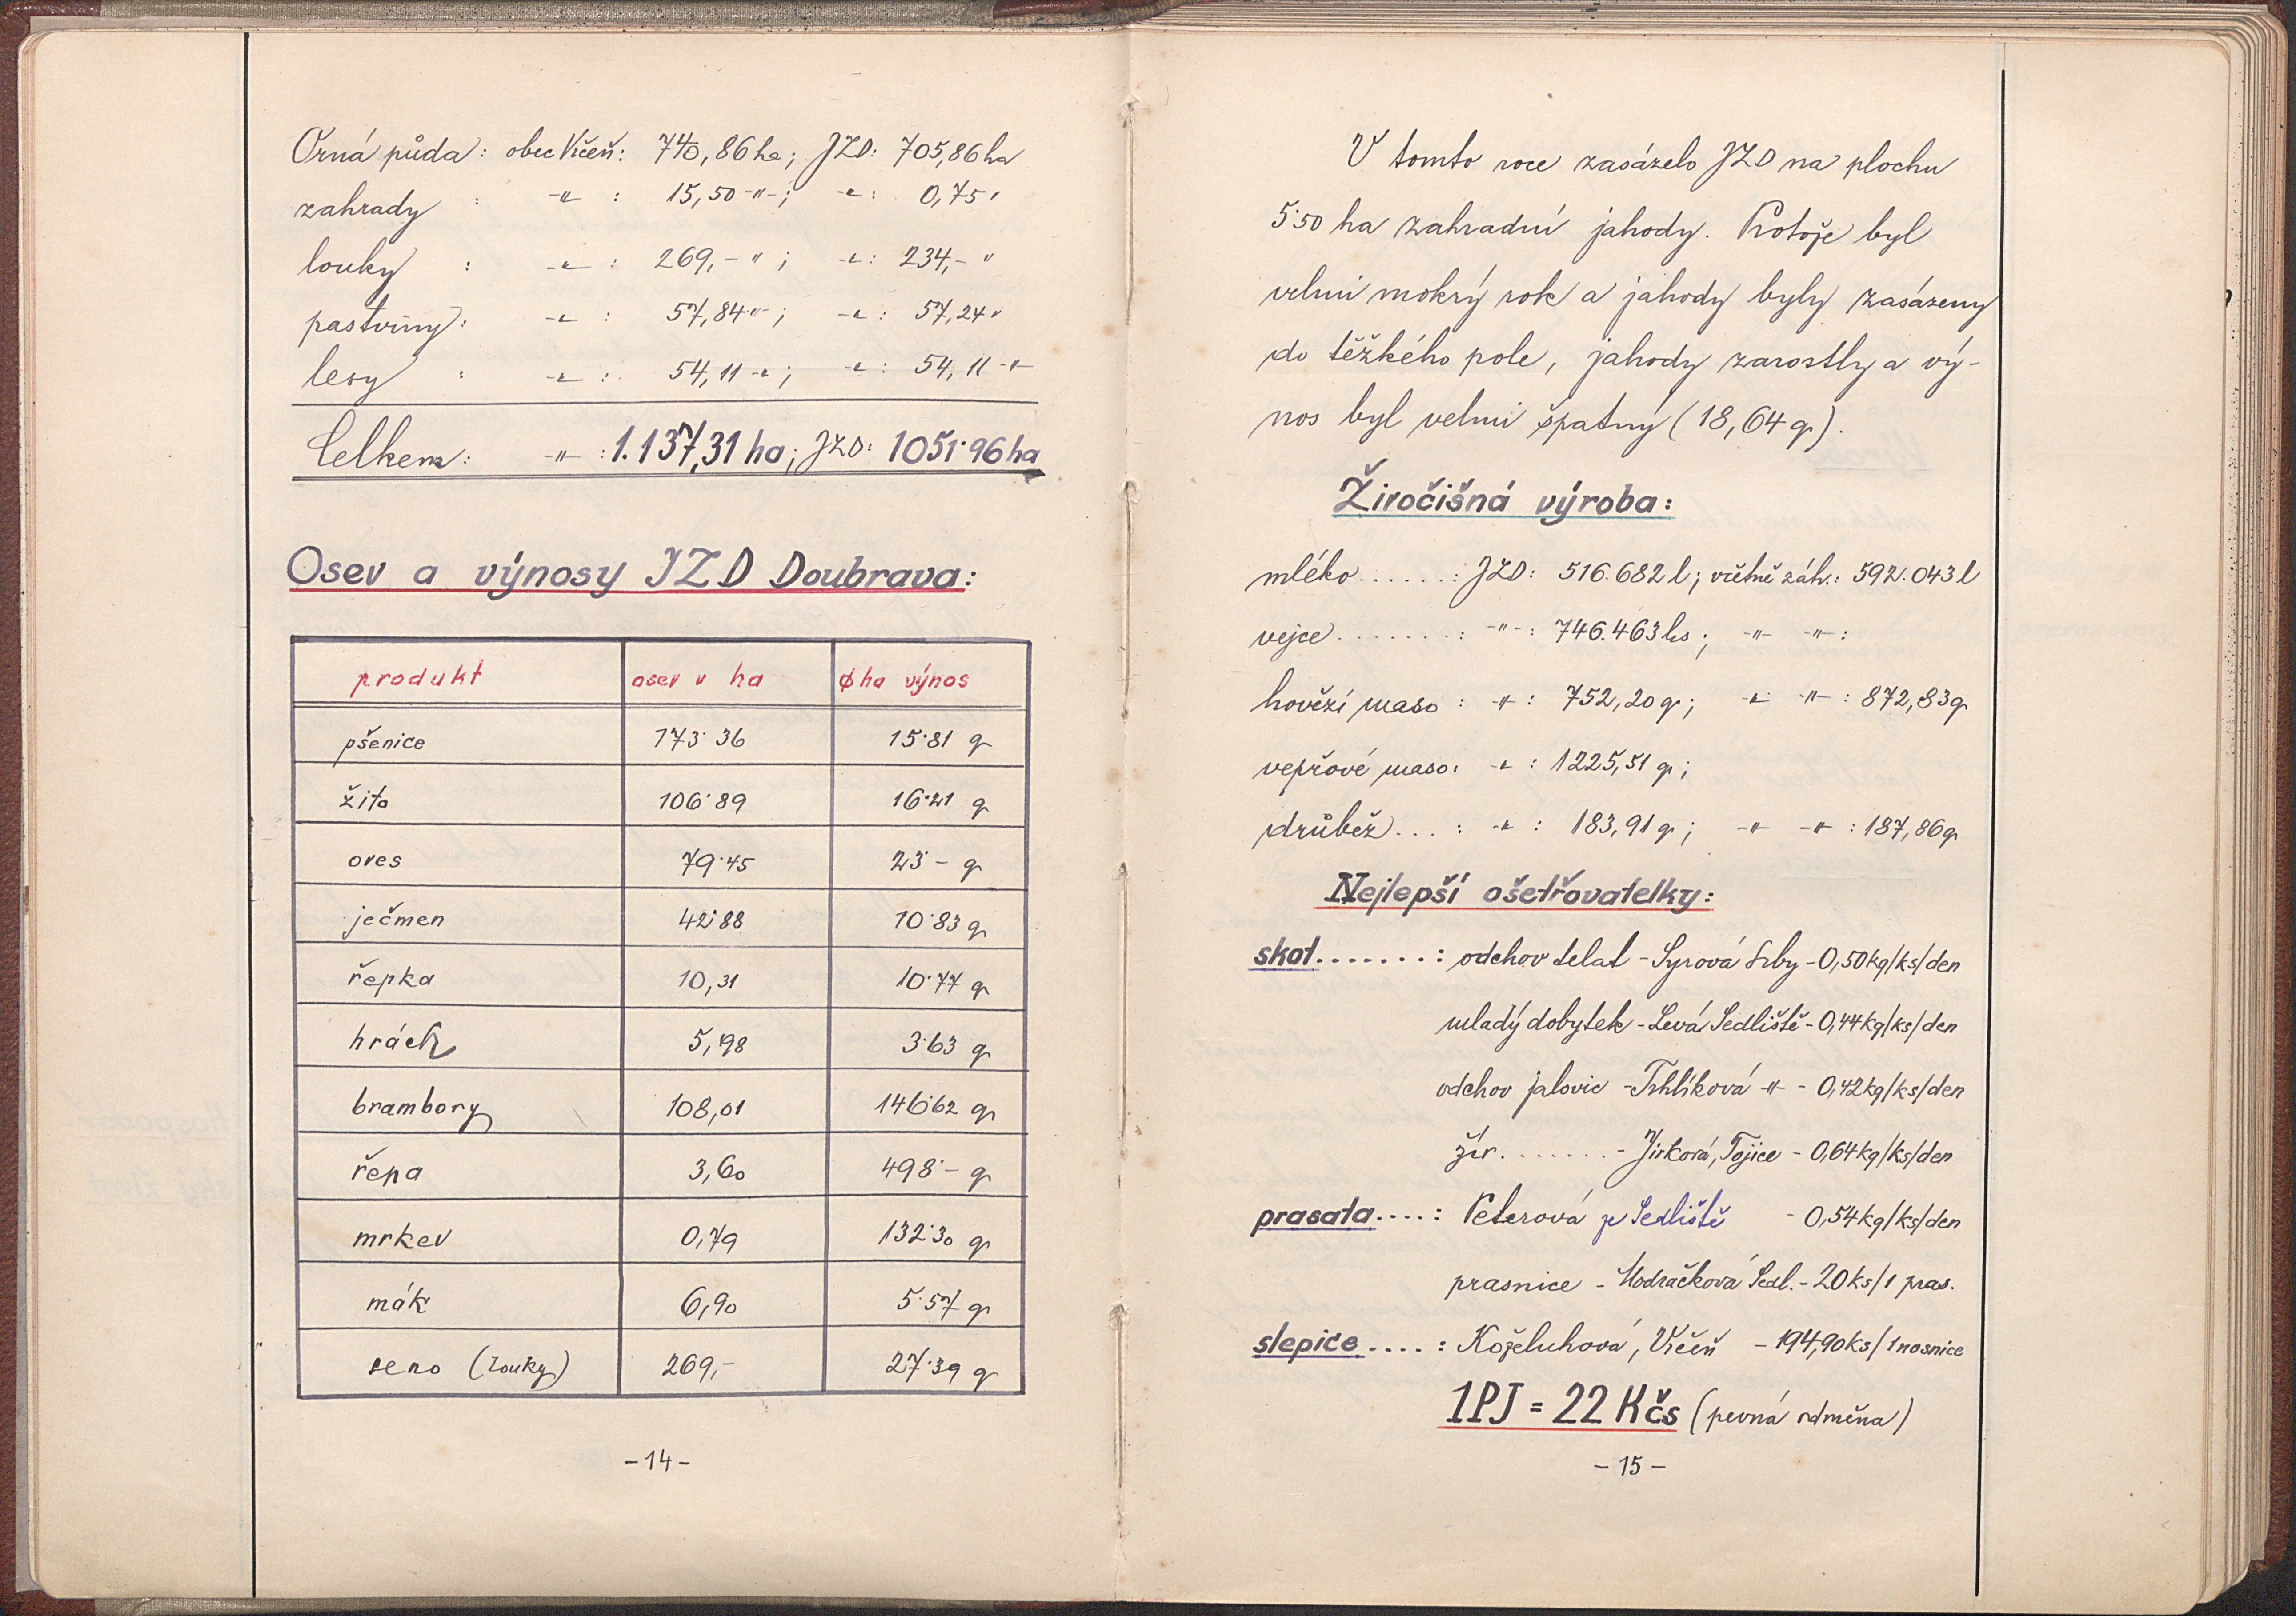 Orná půda: obec Vičeň: 740,86 ha; JZD: 705,86 ha
zahrady : -"- : 15,50 -"-; -"-: 0,75 "
louky : -"- : 269,- " ; -"-: 234,- "
pastviny: -"- : 57,84 -"-; -"-: 57,24 "
lesy : -"- : 54,11 -"-; -"-: 54,11 -"-
Celkem: -"- : 1.137,31 ha; JZD: 1051·96 ha
Osev a výnosy JZD Doubrava:
produkt osev v ha ϕ ha výnos
pšenice 173·36 15·81 q
žito 106·89 16·21 q
oves 79·45 23·- q
ječmen 42·88 10·83 q
řepka 10,31 10·77 q
hrách 5,98 3·63 q
brambory 108,01 146·62 q
řepa 3,60 498·- q
mrkev 0,79 132·30 q
mák 6,90 5·57 q
seno (louky) 269,- 27·39 q
-14-
V tomto roce zasázelo JZD na plochu
5·50 ha zahradní jahody. Protože byl
velmi mokrý rok a jahody byly zasázeny
do těžkého pole, jahody zarostly a vý-
nos byl velmi špatný (18,64 q).
Živočišná výroba:
mléko......: JZD: 516.682 l; včetně záh.: 592.043 l
vejce........: -"-: 746.463 ks; -"- -"-:
hovězí maso : -"-: 752,20 q; -"- -"-: 872,83 q
vepřové maso: -"-: 1225,51 q;
drůbež...: -"-: 183,91 q; -"- -"-: 187,86 q
Nejlepší ošetřovatelky:
skot.......: odchov telat - Syrová Srby - 0,50 kg/ks/den
mladý dobytek - Levá Sedliště - 0,44 kg/ks/den
odchov jalovic - Trhlíková -"- - 0,42 kg/ks/den
žír....... - Jirková, Tojice - 0,64 kg/ks/den
prasata....: Peterová ze Sedliště - 0,54 kg/ks/den
prasnice - Modračková Sedl. - 20 ks/1 pras.
slepice....: Koželuhová, Vičeň - 194,90 ks/1 nosnice
1PJ = 22 Kčs (pevná odměna)
-15-